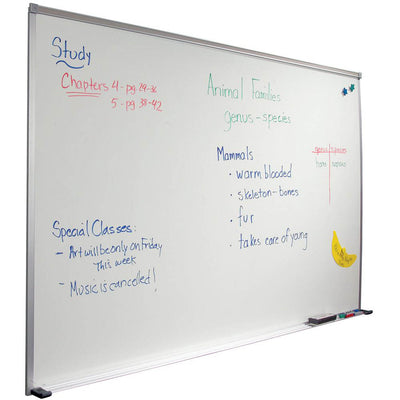 Study
Chapters 4 - pg 29-36
5 - pg 38-42
Animal Families
genus - species
Mammals
• warm blooded
• skeleton - bones
• fur
• takes care of young
genus species
homo sapiens
Special Classes:
- Art will be only on Friday
This week
- Music is cancelled!